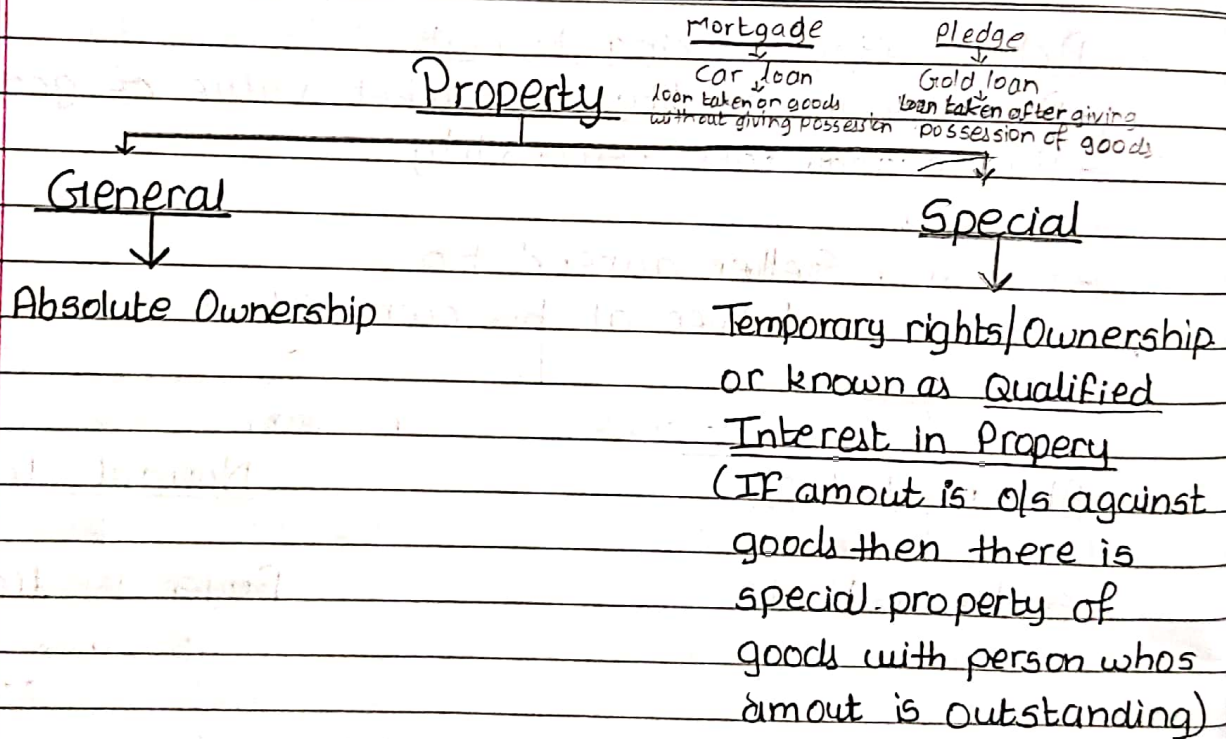 Mortgage
Car loan
loan taken on goods
without giving possession
Pledge
Gold loan
loan taken after giving
possession of goods
Property
General
Absolute Ownership
Special
Temporary rights/Ownership
or known as Qualified
Interest in Propery
(If amout is o/s against
goods then there is
special property of
goods with person whos
amout is outstanding)